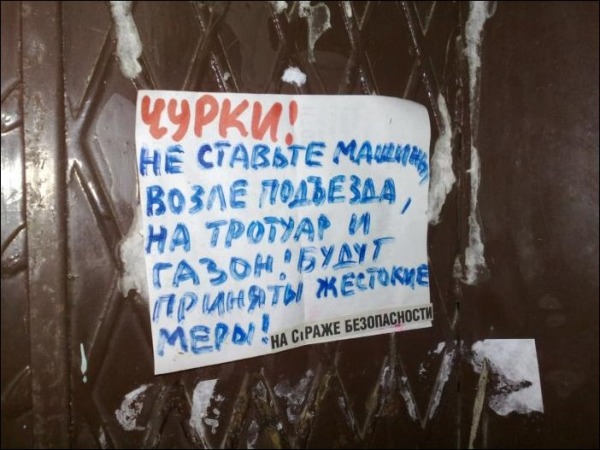 ЧУРКИ!
НЕ СТАВЬТЕ МАШИНЫ
ВОЗЛЕ ПОДЪЕЗДА,
НА ТРОТУАР И
ГАЗОН! БУДУТ
ПРИНЯТЫ ЖЕСТОКИЕ
МЕРЫ!
НА СТРАЖЕ БЕЗОПАСНОСТИ